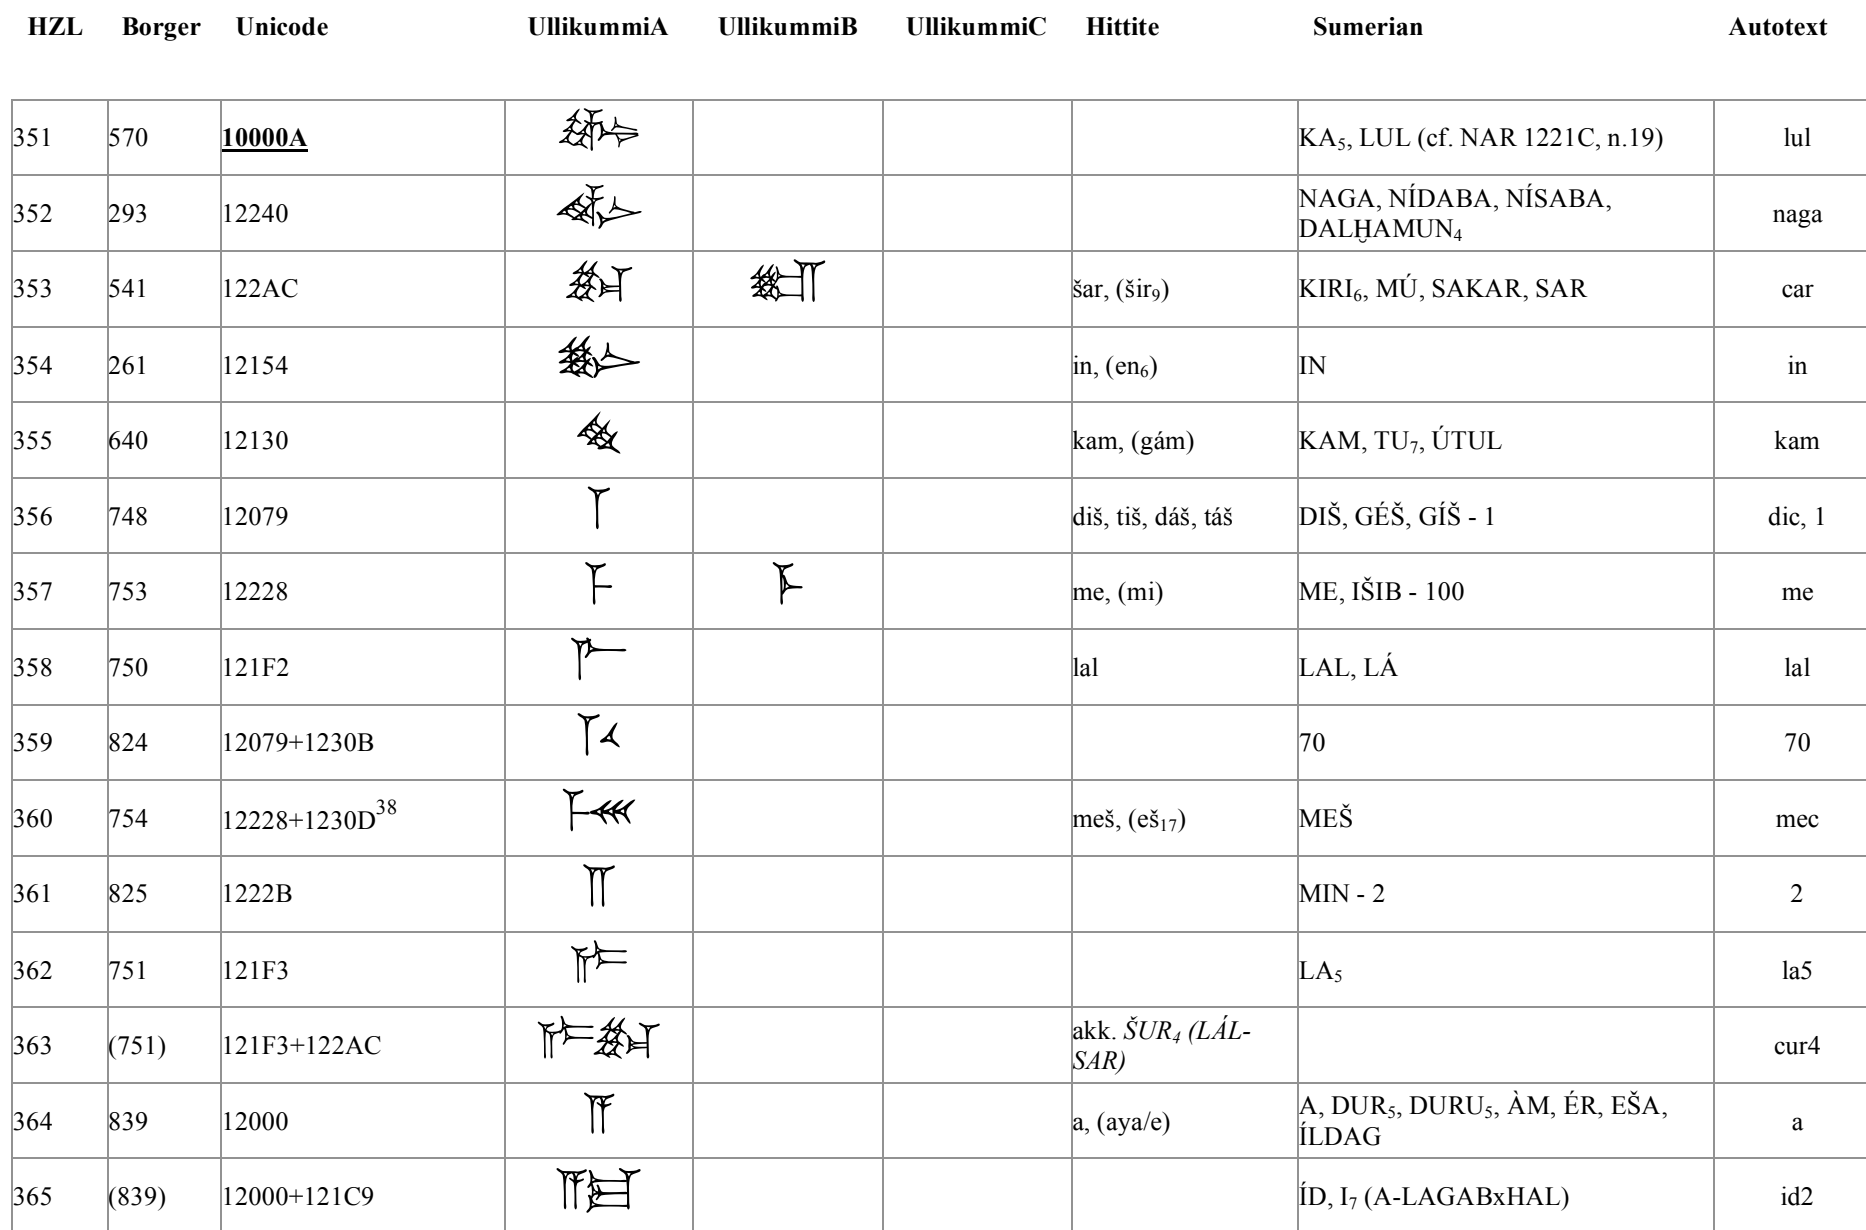 HZL Borger Unicode UllikummiA UllikummiB UllikummiC Hittite Sumerian Autotext
351 570 10000A 𒈜 KA₅, LUL (cf. NAR 1221C, n.19) lul
352 293 12240 𒉀 NAGA, NÍDABA, NÍSABA,
DALḪAMUN₄ naga
353 541 122AC 𒊬 𒊬 šar, (šir₉) KIRI₆, MÚ, SAKAR, SAR car
354 261 12154 𒅔 in, (en₆) IN in
355 640 12130 𒄰 kam, (gám) KAM, TU₇, ÚTUL kam
356 748 12079 𒁹 diš, tiš, dáš, táš DIŠ, GÉŠ, GÍŠ - 1 dic, 1
357 753 12228 𒈨 𒈨 me, (mi) ME, IŠIB - 100 me
358 750 121F2 𒇲 lal LAL, LÁ lal
359 824 12079+1230B 𒁹𒌋 70 70
360 754 12228+1230D³⁸ 𒈨𒌍 meš, (eš₁₇) MEŠ mec
361 825 1222B 𒈫 MIN - 2 2
362 751 121F3 𒇳 LA₅ la5
363 (751) 121F3+122AC 𒇳𒊬 akk. ŠUR₄ (LÁL-
SAR) cur4
364 839 12000 𒀀 a, (aya/e) A, DUR₅, DURU₅, ÀM, ÉR, EŠA,
ÍLDAG a
365 (839) 12000+121C9 𒀀𒇉 ÍD, I₇ (A-LAGABxHAL) id2